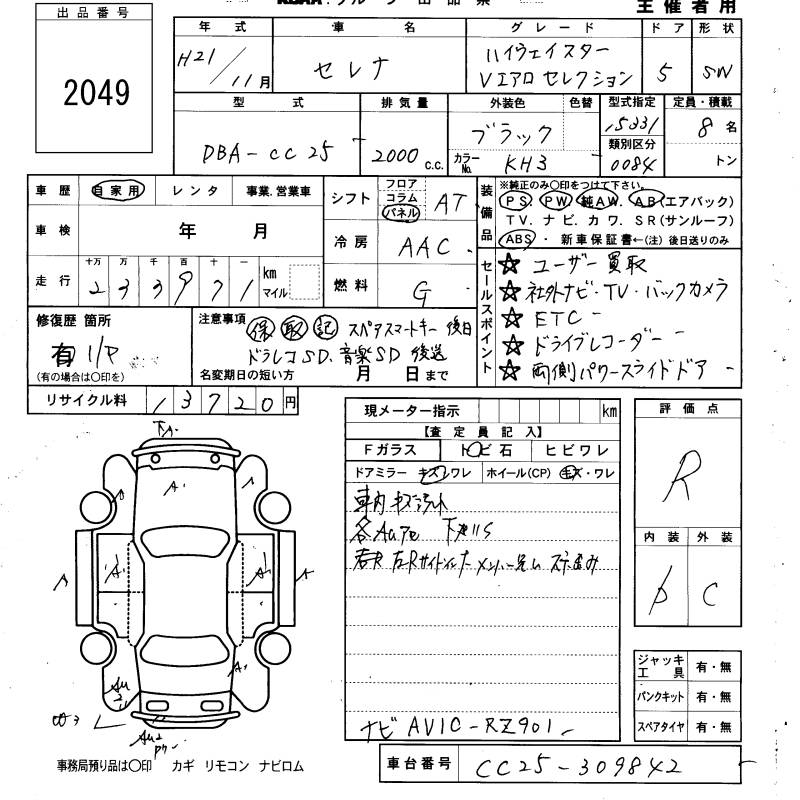 主催者用
出品番号
2049
年式 車名 グレード ドア 形状
H21/11月 セレナ ハイウェイスター Vエアロセレクション 5 SW
型式 排気量 外装色 色替 型式指定 定員・積載
DBA-CC25 2000c.c. ブラック 15331 8名
カラーNo. KH3 類別区分 0084 トン
車歴 自家用 レンタ 事業.営業車
シフト フロア コラム パネル AT
装備品 ※純正のみ〇印をつけて下さい。
PS. PW. 純AW. AB(エアバック)
TV. ナビ. カワ. SR(サンルーフ)
ABS・新車保証書←(注)後日送りのみ
車検 年 月
冷房 AAC
走行 十万 万 千 百 十 一
233971 km マイル
燃料 G
セールスポイント
☆ ユーザー買取
☆ 社外ナビ・TV・バックカメラ
☆ ETC
☆ ドライブレコーダー
☆ 両側パワースライドドア
修復歴 箇所
有
(有の場合は〇印を)
注意事項 保 取 記 スペアスマートキー後日
ドラレコSD、音楽SD 後送
名変期日の短い方 月 日まで
リサイクル料 13720円
現メーター指示 km
【査定員記入】
Fガラス トビ石 ヒビワレ
ドアミラー キズ・ワレ ホイール(CP) キズ・ワレ
車内キズ
ナビ AVIC-RZ901
評価点
R
内装 外装
D C
ジャッキ工具 有・無
パンクキット 有・無
スペアタイヤ 有・無
事務局預り品は〇印 カギ リモコン ナビロム
車台番号 CC25-309842